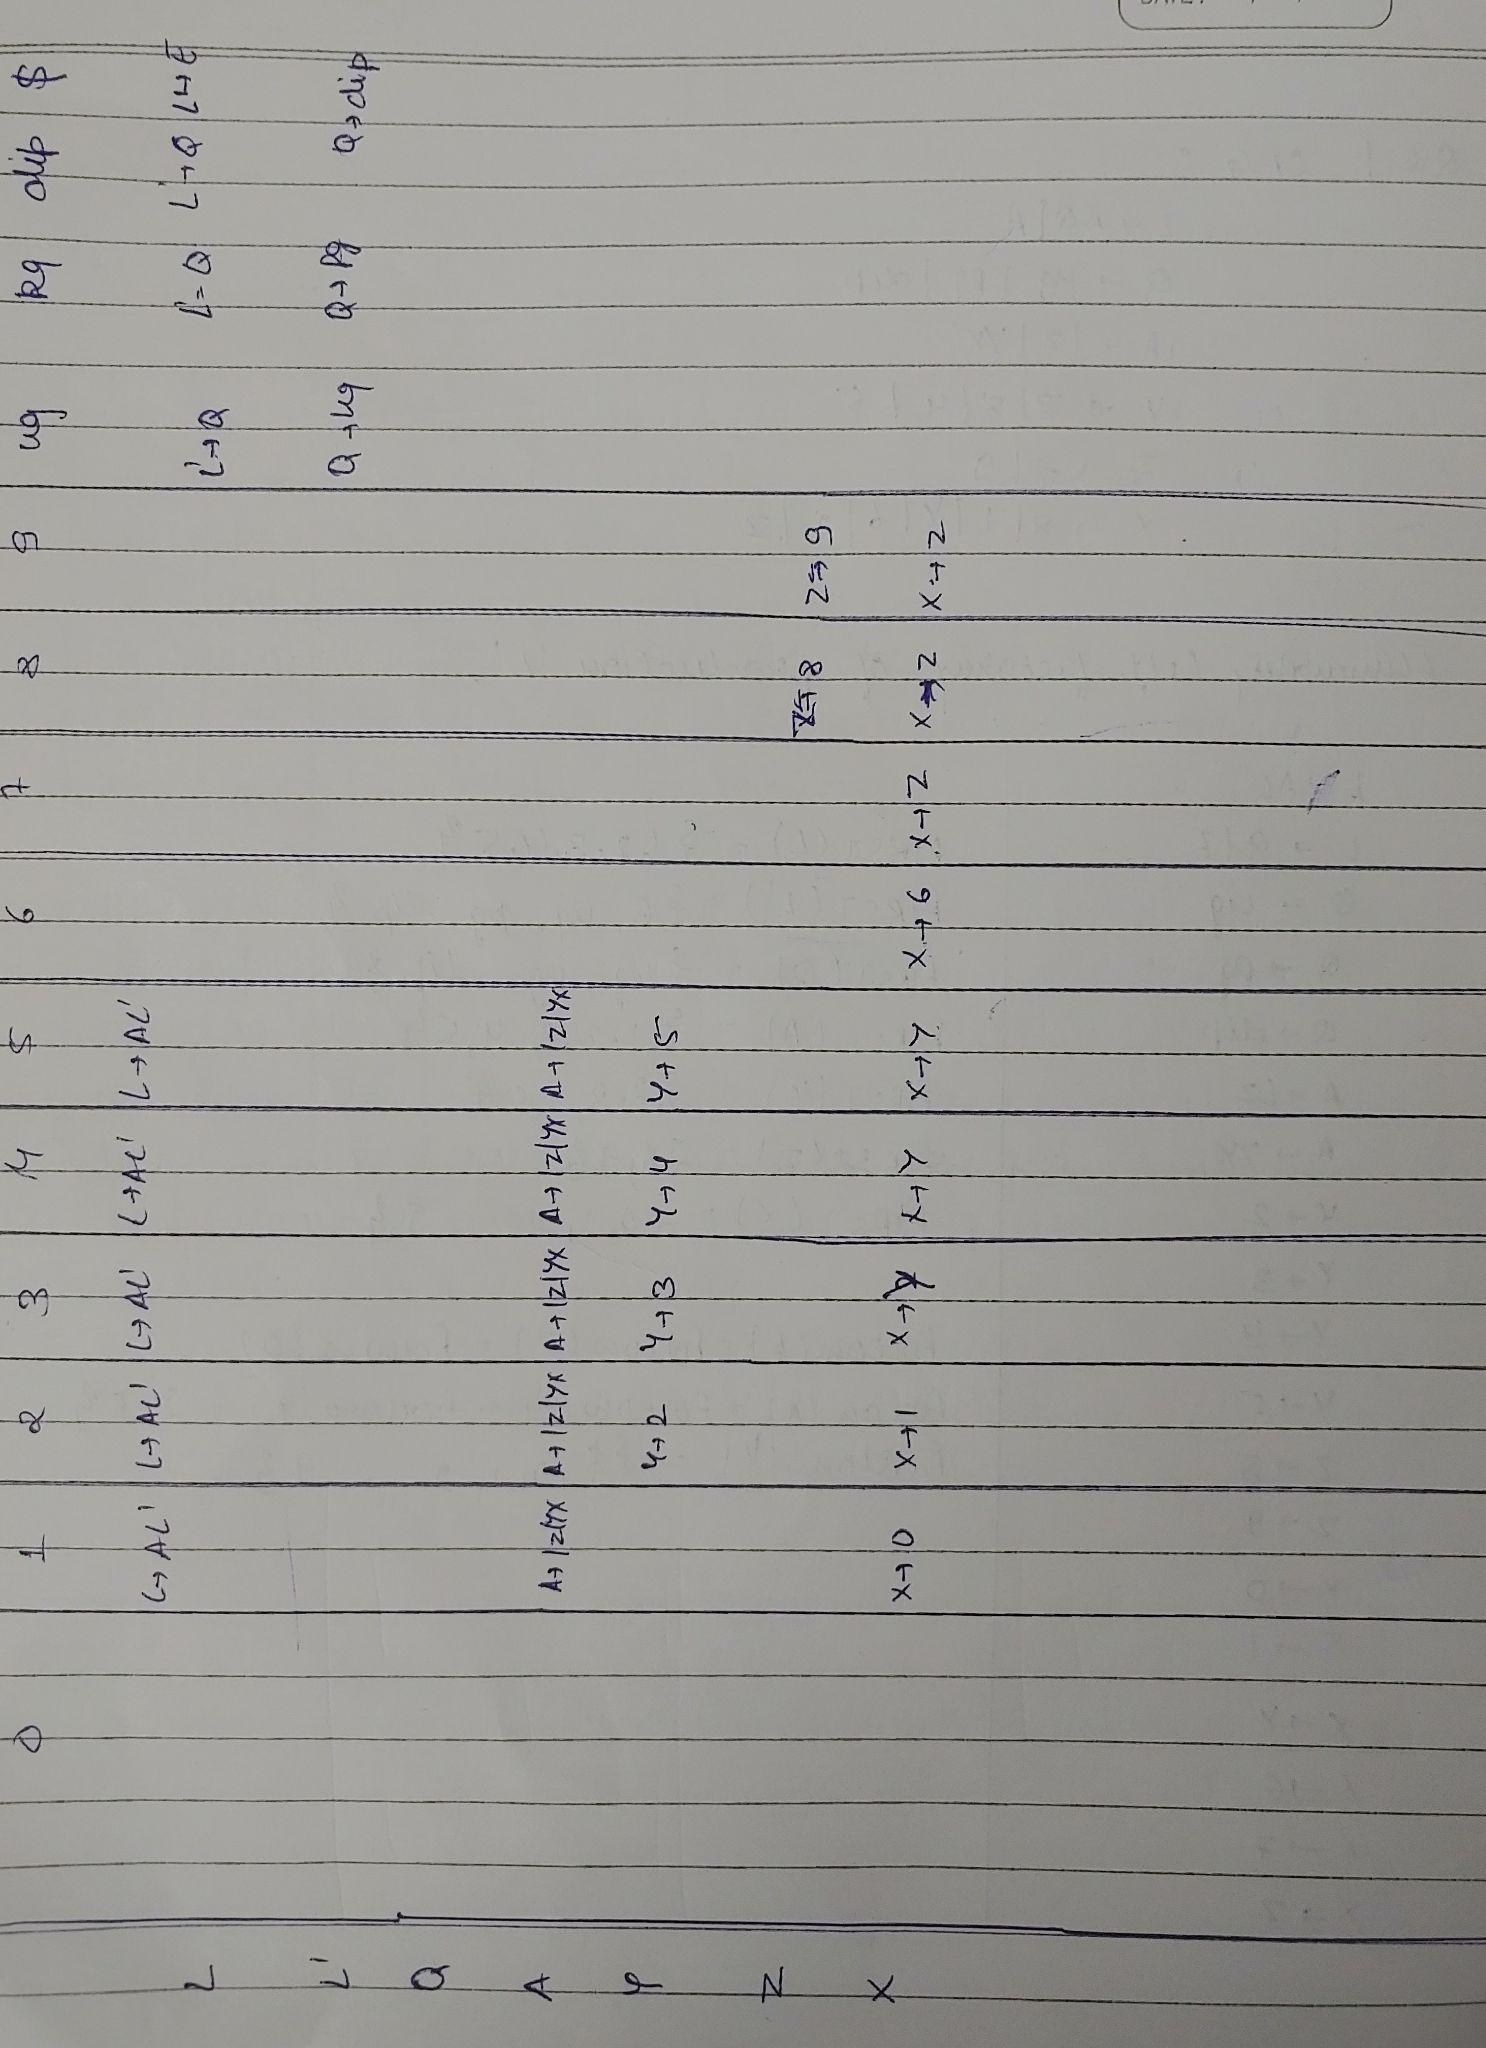 0 1 2 3 4 5 6 7 8 9 ug pg dip $
L L→AL' L→AL' L→AL' L→AL' L→AL'
L' L'→Q L'=Q L'→Q L'→Є
Q Q→ug Q→pg Q→dip
A A→1Z1YX A→1Z1YX A→1Z1YX A→1Z1YX A→1Z1YX
Y Y→2 Y→3 Y→4 Y→5
Z Z→8 Z→9
X X→0 X→1 X→Y X→Y X→Y X→6 X→Z X→Z X→Z